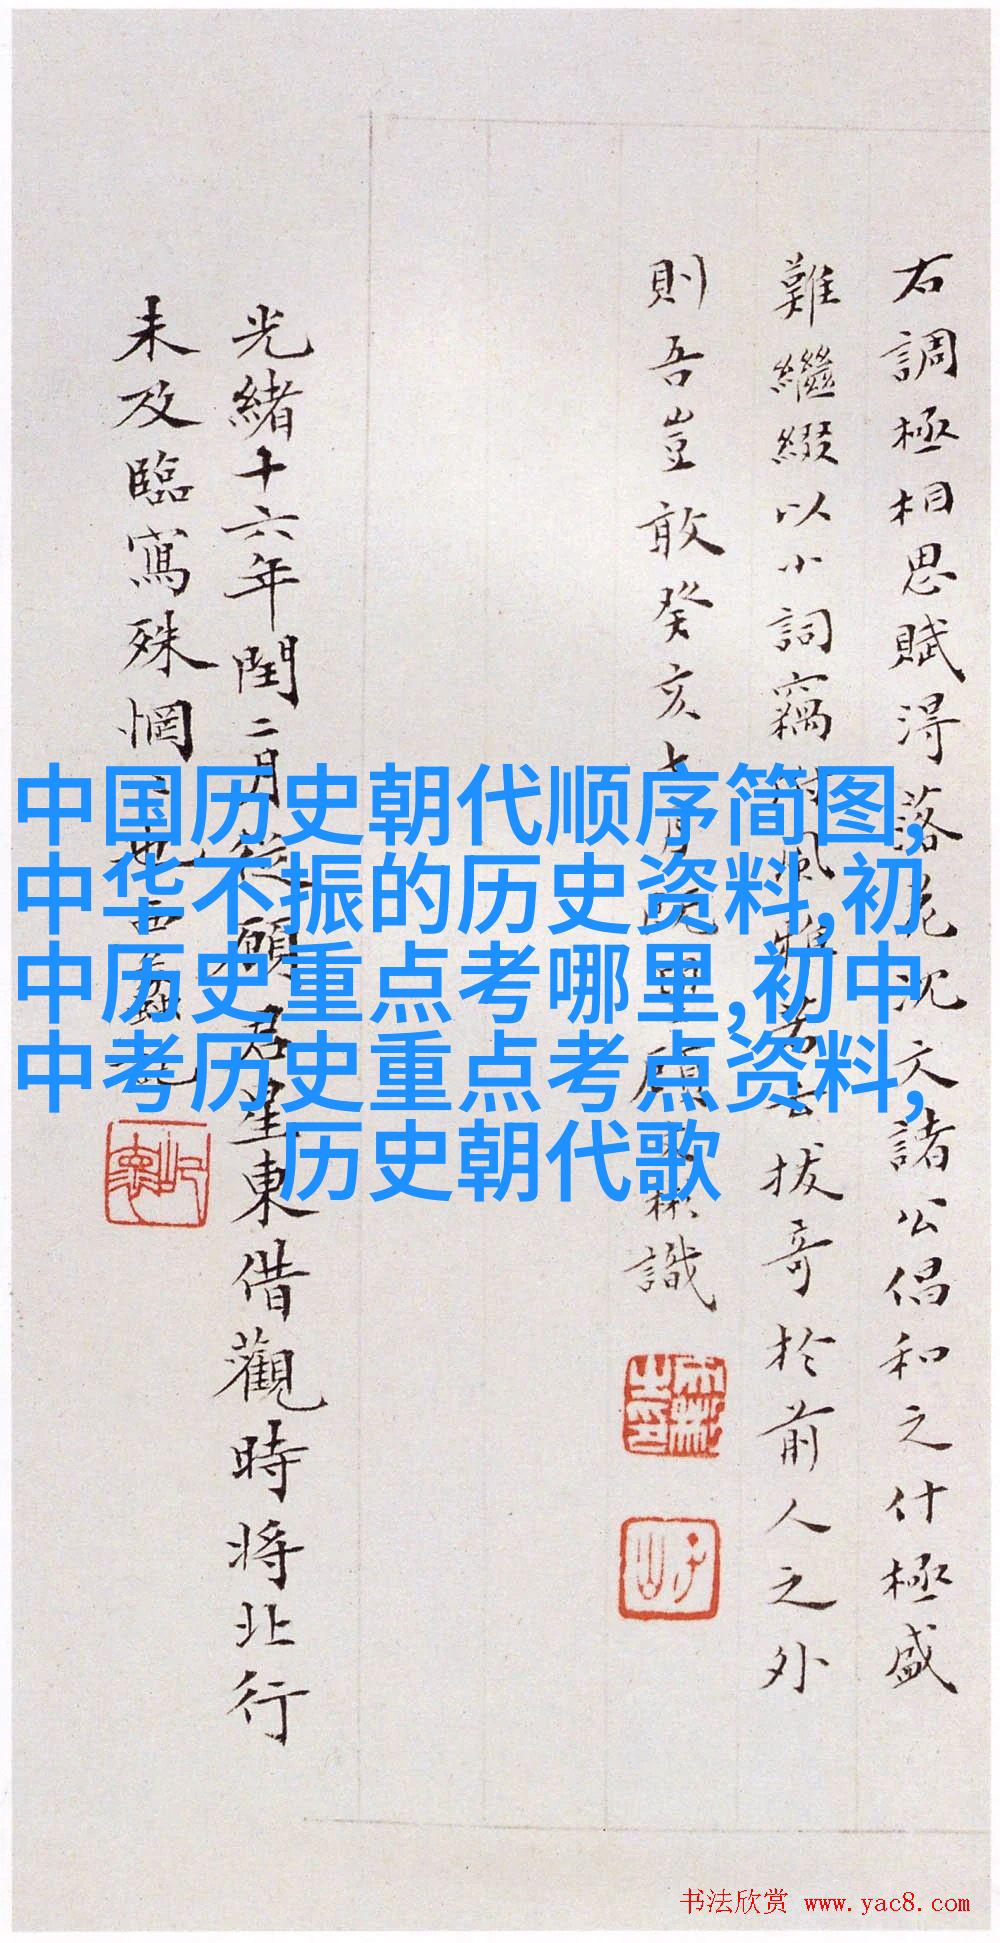 右調極相思賦得落花沈文諸公倡和之什極盛
難繼綴以小詞竊附風雅若云拔奇於前人之外
則吾豈敢癸亥七月既
識
光緒十六年閏二月從顧君星東借觀時將北行
未及臨寫殊惘
中国历史朝代顺序简图,
中华不振的历史资料,初
中历史重点考哪里,初中
中考历史重点考点资料,
历史朝代歌
书法欣赏 www.yac8.com